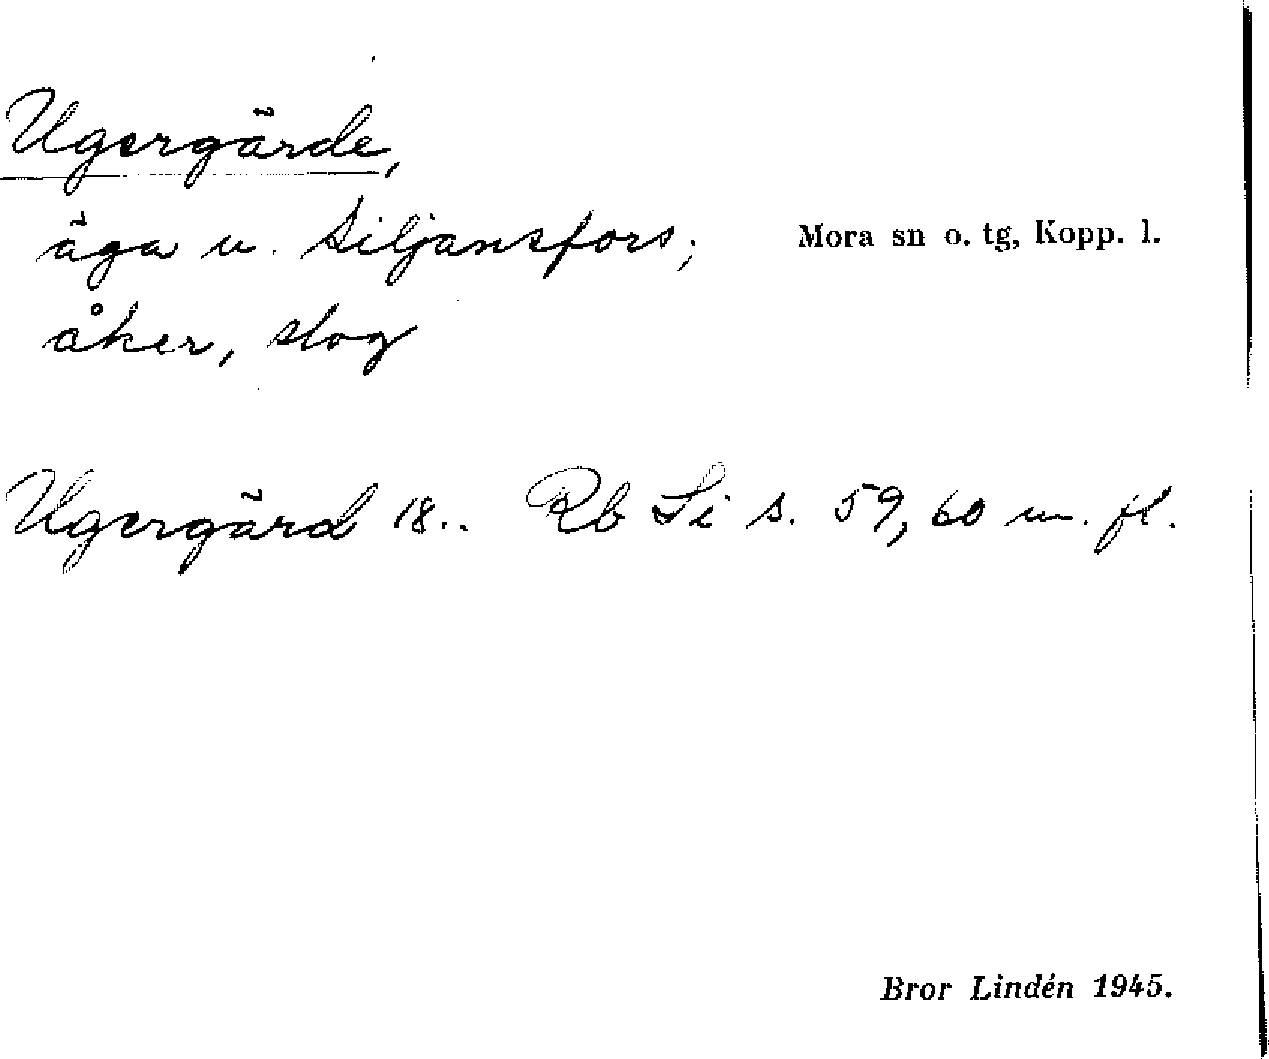 Ugergärde,
äga u. Siljansfors;
Mora sn o. tg, Kopp. l.
åker, slog
Ugergärd 18.. Rb Si s. 59, 60 m. fl.
Bror Lindén 1945.